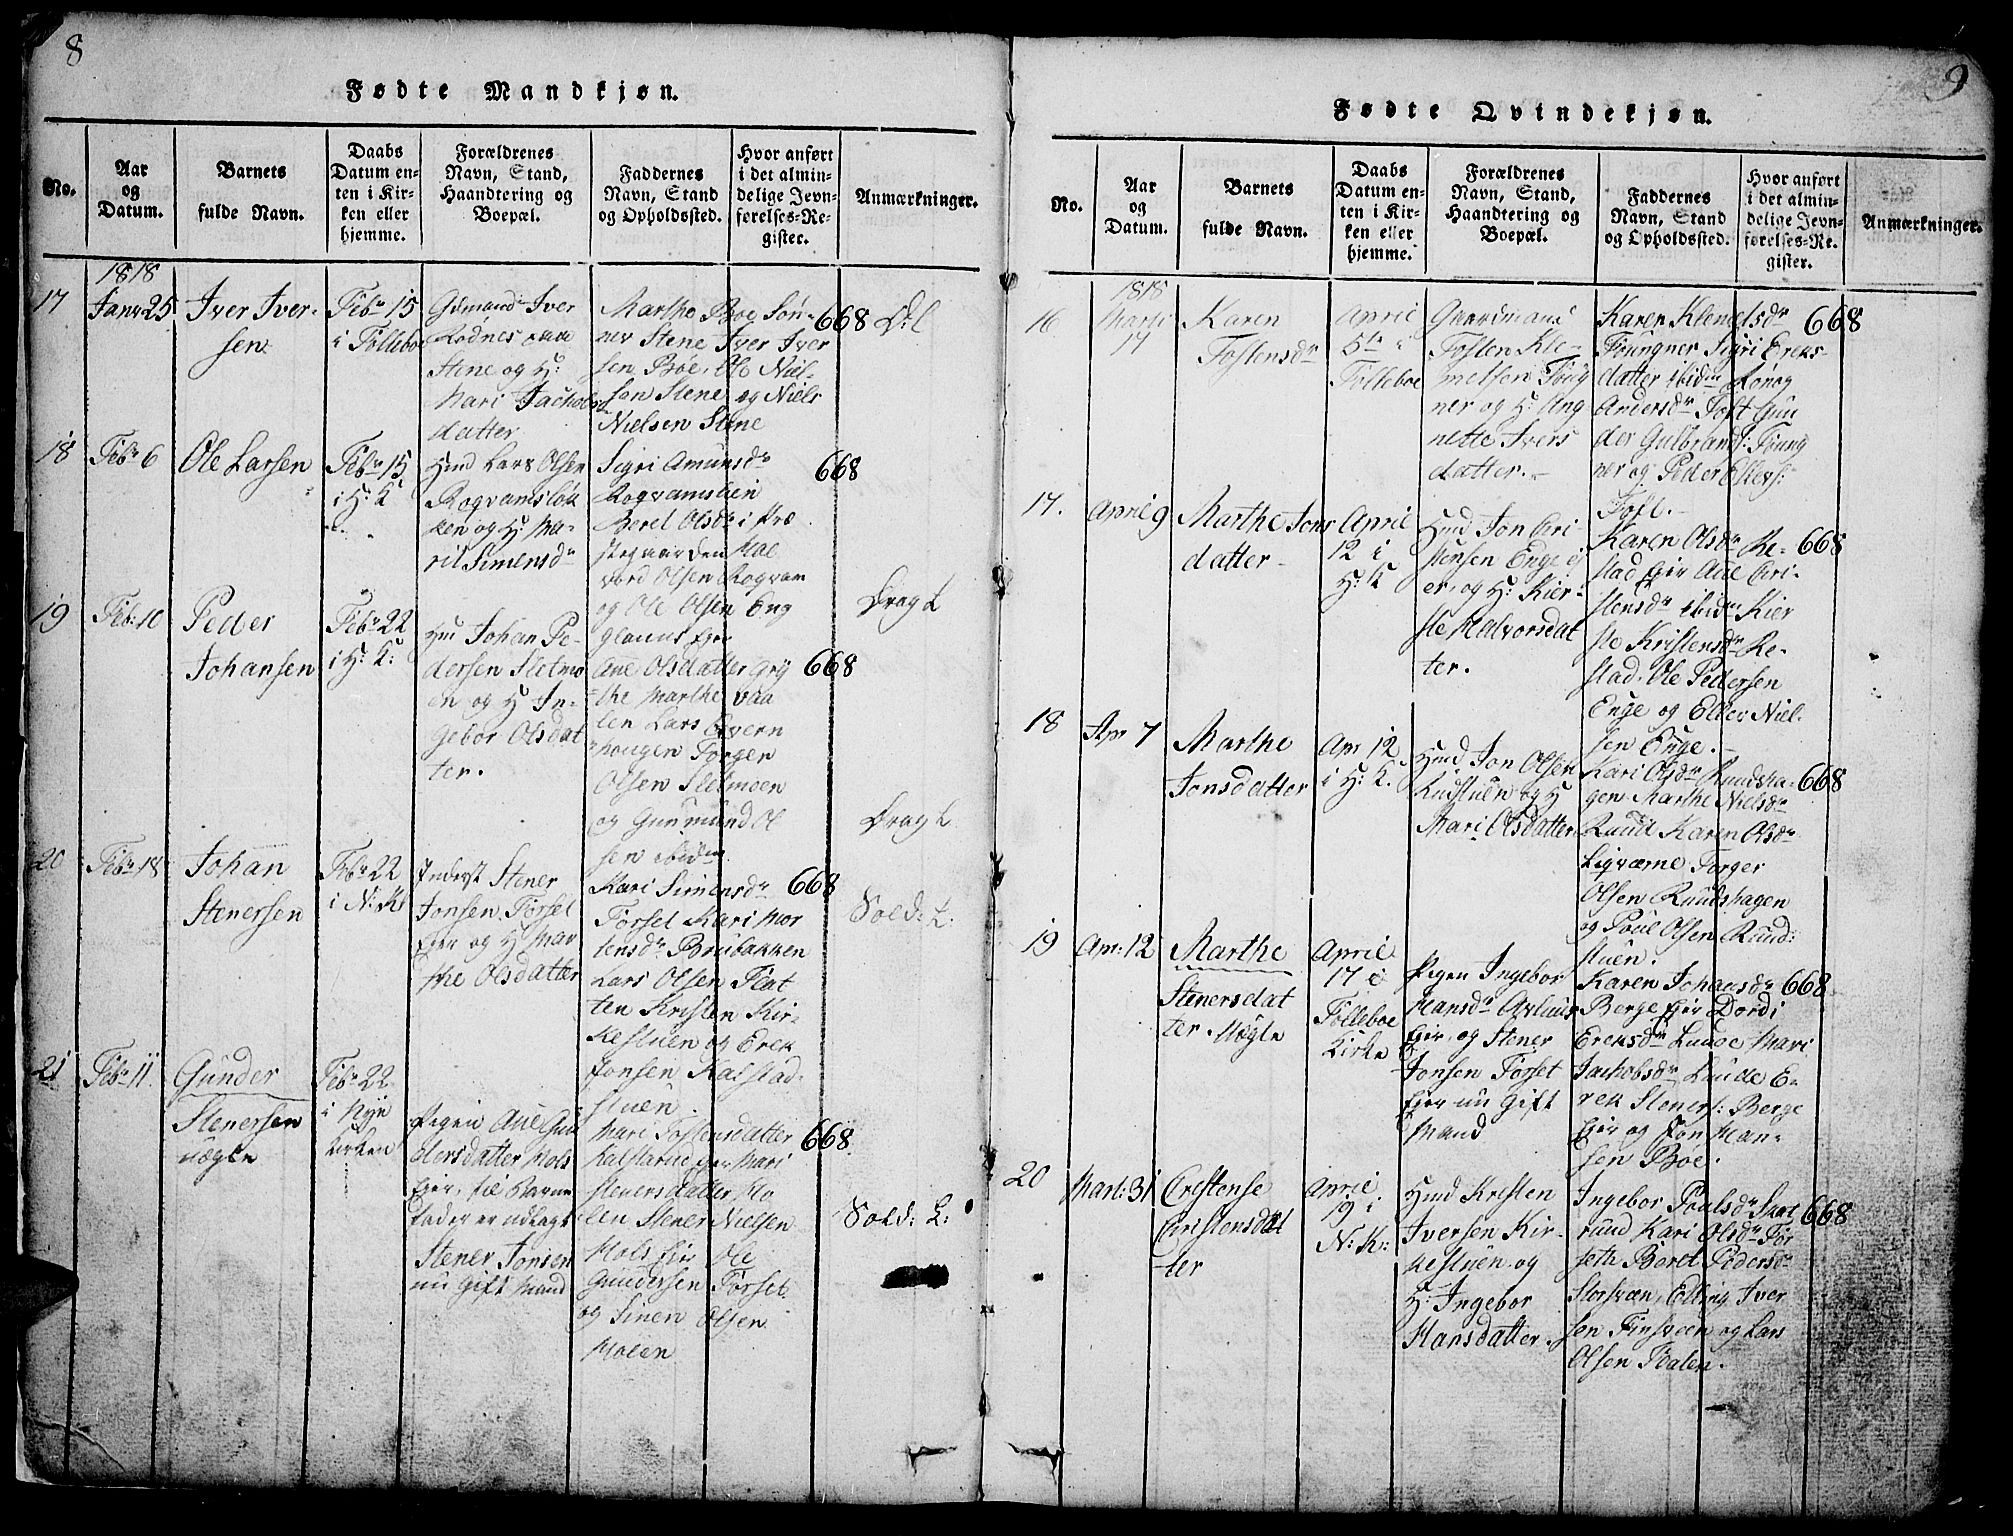 8
Fødte Mandkjøn.
No.
Aar
og
Datum.
Barnets
fulde Navn.
Daabs
Datum en-
ten i Kir-
ken eller
hjemme.
Forældrenes
Navn, Stand,
Haandtering og
Boepæl.
Faddernes
Navn, Stand
og Opholdssted.
Hvor anført
i det almin-
delige Jevn-
førelses-Re-
gister.
Anmærkninger.
1818
17
Janv 25
Iver Iver-
sen
Feb 15
i Følleboe
Iver
Stene og H:
Mari Jachobs
datter
Marthe Boe
Stene Iver Iver
sen Böe, Ole Niel-
sen Stene og Niels
Nielsen Stene
668
D:L
18
Febr 6
Ole Larsen
Febr 15
i H: K
Hmd Lars Olsen
Rogvamsløk
ken og H: Ma-
rit Simensdr
Sigri Amunsdr
Rogvamslien
Beret Olsdr i Præ
stegaarden Hal
vord Olsen Rogvam
og Ole Olsen Eng
668
19
Feb: 10
Peder
Johansen
Febr 22
i H: K:
Johan Pe-
dersen Sletmo
en og H In-
gebor Olsdat
ter.
Ane Olsdatter Gry
the Marthe Vaa
len Lars Qvern
hougen Torger
Olsen Sletmoen
og Gunmund Ol
sen ibidm
668
Drag L
20
Febr 18
Johan
Stenersen
Febr 22
i N: K:
Inderst Stener
Jonsen Forset
Eier og H Mar
the Olsdatter
Mari Simensdr
Forset Kari Mor
tensdr Brubakken
Lars Olsen Flat
ten Kristen Kir-
kestuen og Erek
Jonsen Kalstad-
stuen.
668
Drag L
Sold: L:
21
Febr 11.
Gunder
Stenersen
uægte
Febr 22
i Nye
kirken
Pigen Ane Gun
dersdatter Hols
Eier, til Barne
fader er udlagt
Stener Jonsen
nu Gift Mand
Mari Tostensdatter
Kalstad Eier Mari
Stenersdatter Ho
len Stener Nielsen
Hols Eir Ole
Gundersen Forset
og Simen Olsen
Holen
668
Sold: L:
9
Fødte Qvindekjøn.
No.
Aar
og
Datum.
Barnets
fulde Navn.
Daabs
Datum en-
ten i Kir-
ken eller
hjemme.
Forældrenes
Navn, Stand,
Haandtering og
Boepæl.
Faddernes
Navn, Stand
og Opholdssted.
Hvor anført
i det almin-
delige Jevn-
førelses-Re-
gister.
Anmærkninger.
1818
16
Marti
17
Karen
Tostensdr
April
5te i
Følleboe
Gaardmand
Tosten Kle-
metsen Foug
ner og H: Ang
nette Ivers
datter.-
Karen Klemetsdr
Foungner Sigri Ereks-
datter ibidm Rønog
Andersdr Toft Gun
der Gulbrands: Foung
ner og Peder Ellevs:
Toft.-
668
17.
April 9
Marthe Jons
datter
April
12 i
H: K
Hmd Jon Cri
stensen Enge ei
er, og H: Kier-
ste Halvorsdat
ter.
Karen Olsdr Re-
stad Eier Ane Cri-
stensdr ibidm Kier
ste Kristensdr Re-
stad, Ole Pedersen
Enge og Ellev Niel-
sen Enge.-
668
18
Apr 7
Marthe
Jonsdatter
Apr 12
i H: K.
Hmd Jon Olsen
Rudstuen og H
Mari Olsdatter
Kari Olsdr Ruudsha-
gen Marthe Nielsdr
Ruud Karen Olsdr
Ligværne Torger
Olsen Ruudshagen
og Poul Olsen Ruud-
stuen.
668
19
Apr: 12
Marthe
Stenersdat
ter Uægte
April
17 i
Følleboe
Kirke
Pigen Ingebor
Hansdr
Eier, og Stener
Jonsen Forset
Eier nu Gift
Mand
Karen Johansdr
Berge Eier Dordi
Ereksdr Lunde Mari
Jachobsdr Lunde E-
rek Steners: Berge
Eier og Jon Han-
sen Boe.
668
20
Mart: 31
Crestense
Cristensdat
ter
April
19 i
N: K:
Hmd Kresten
Iversen Kir-
kestuen og
H: Ingebor
Hansdatter.
Ingebor Poulsdr Skat
rund Kari Olsdr For
seth Beret Pedersdr
Storsveen, Elling Iver
sen Finsveen og Lars
Olsen Dalen.
668